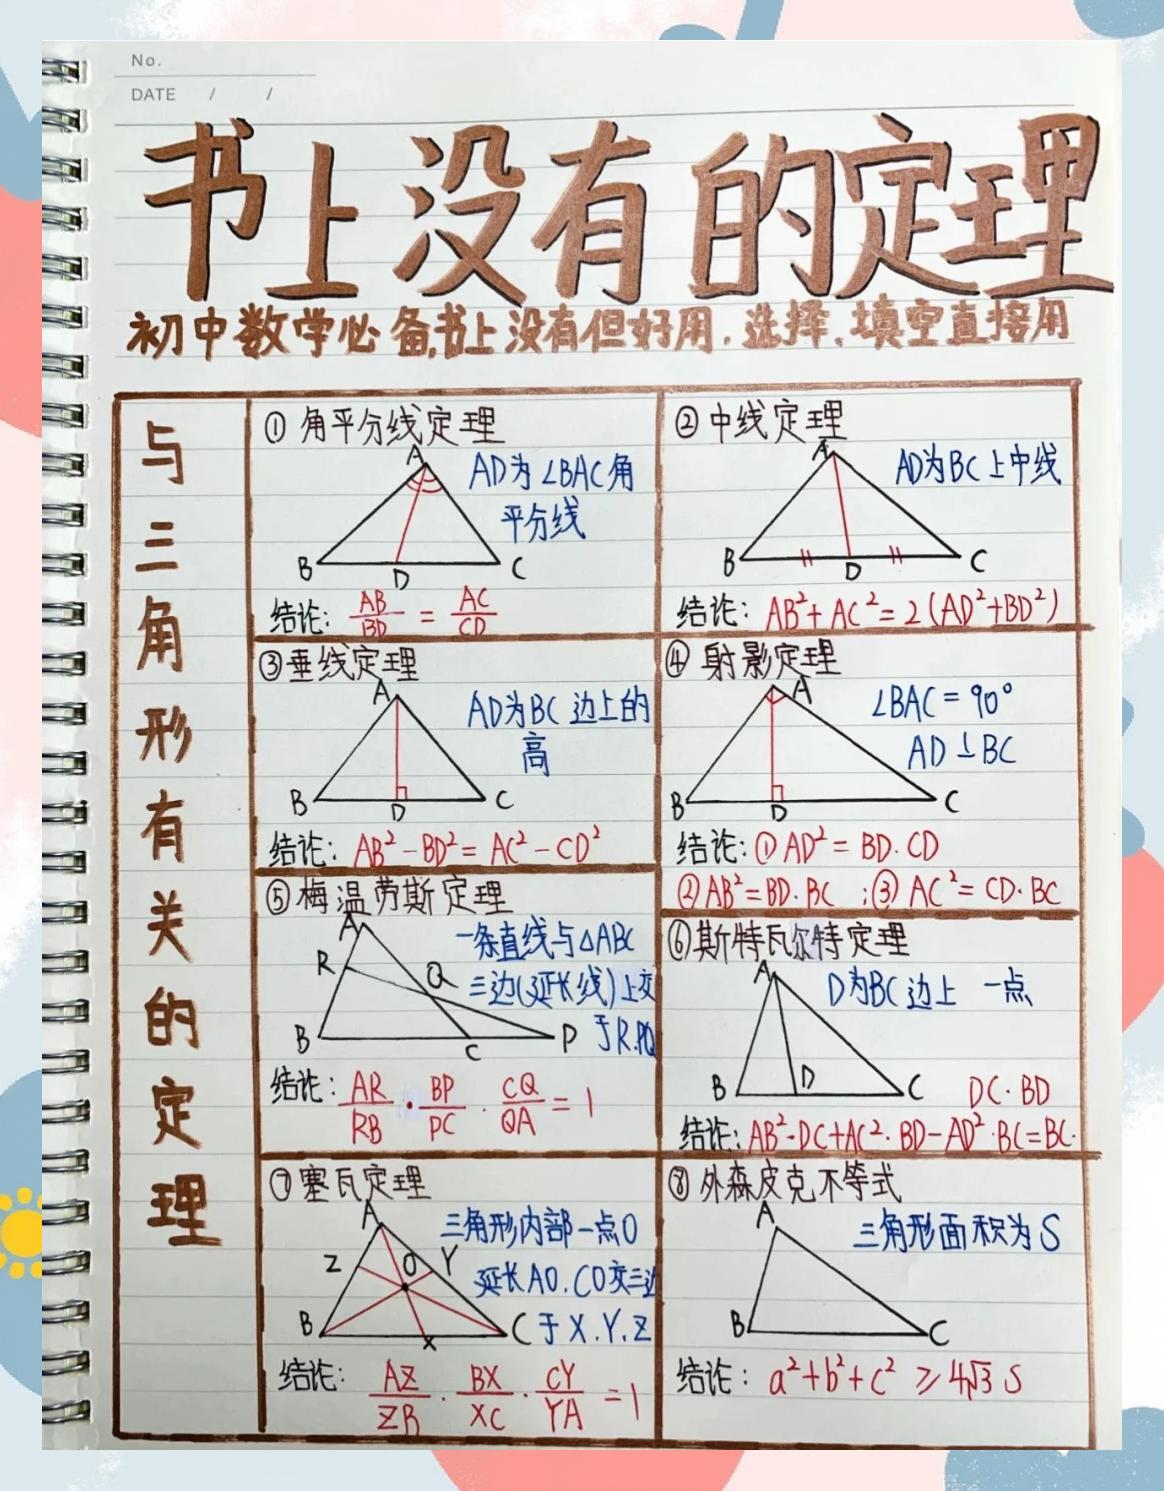 No.
DATE / /
书上没有的定理
初中数学必备,书上没有但好用,选择、填空直接用
与三角形有关的定理
① 角平分线定理
A
AD为∠BAC角
平分线
B D C
结论: AB/BD = AC/CD
② 中线定理
A
AD为BC上中线
B D C
结论: AB²+AC²=2(AD²+BD²)
③垂线定理
A
AD为BC边上的
高
B D C
结论: AB²-BD²=AC²-CD²
④ 射影定理
A
∠BAC=90°
AD⊥BC
B D C
结论:①AD²=BD·CD
②AB²=BD·BC ;③AC²=CD·BC
⑤梅温劳斯定理
A
一条直线与△ABC
R Q
三边(延长线)上交
B C P
于R.P.Q
结论: AR/RB · BP/PC · CQ/QA = 1
⑥斯特瓦尔特定理
A
D为BC边上 一点
B D C
DC·BD
结论: AB²·DC+AC²·BD-AD²·BC=BC·
⑦塞瓦定理
A
三角形内部一点O
Z O Y
延长AO.CO交三边
B X C
于X.Y.Z
结论: AZ/ZB · BX/XC · CY/YA = 1
⑧外森皮克不等式
A
三角形面积为S
B C
结论: a²+b²+c² ≥4√3 S